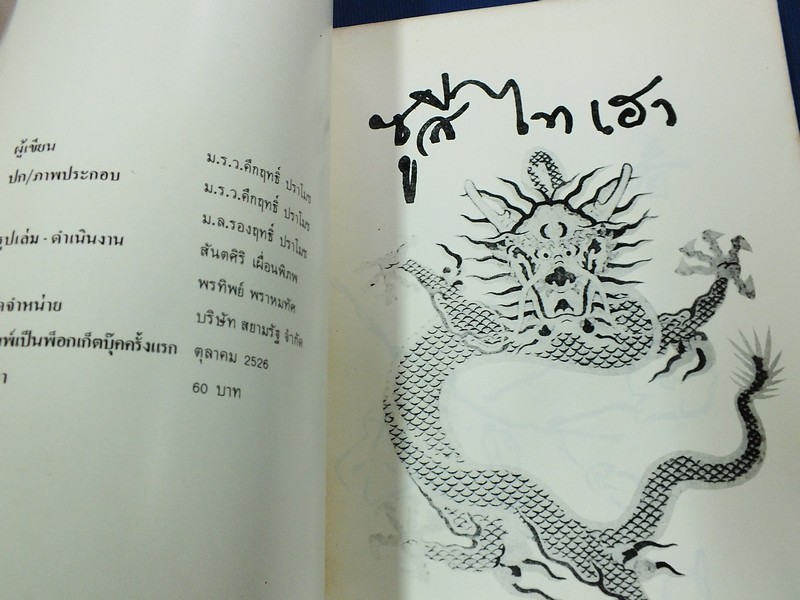 ผู้เขียน ม.ร.ว.คึกฤทธิ์ ปราโมช
ปก/ภาพประกอบ ม.ร.ว.คึกฤทธิ์ ปราโมช
ม.ล.รองฤทธิ์ ปราโมช
รูปเล่ม - ดำเนินงาน สันตศิริ เผื่อนพิภพ
พรทิพย์ พราหมทัศ
จำหน่าย บริษัท สยามรัฐ จำกัด
พ์เป็นพ็อกเก็ตบุ๊คครั้งแรก ตุลาคม 2526
60 บาท
ซูสี ไทเฮา